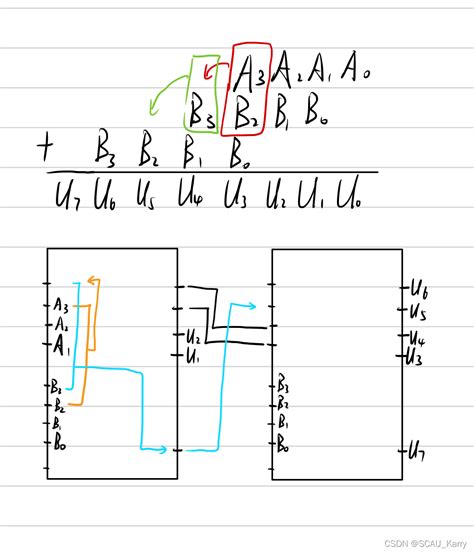 A3 A2 A1 A0
B3 B2 B1 B0
+ B3 B2 B1 B0
U7 U6 U5 U4 U3 U2 U1 U0
A3
A2
A1
B3
B2
B1
B0
U2
U1
B3
B2
B1
B0
U6
U5
U4
U3
U7
CSDN @SCAU_Karry